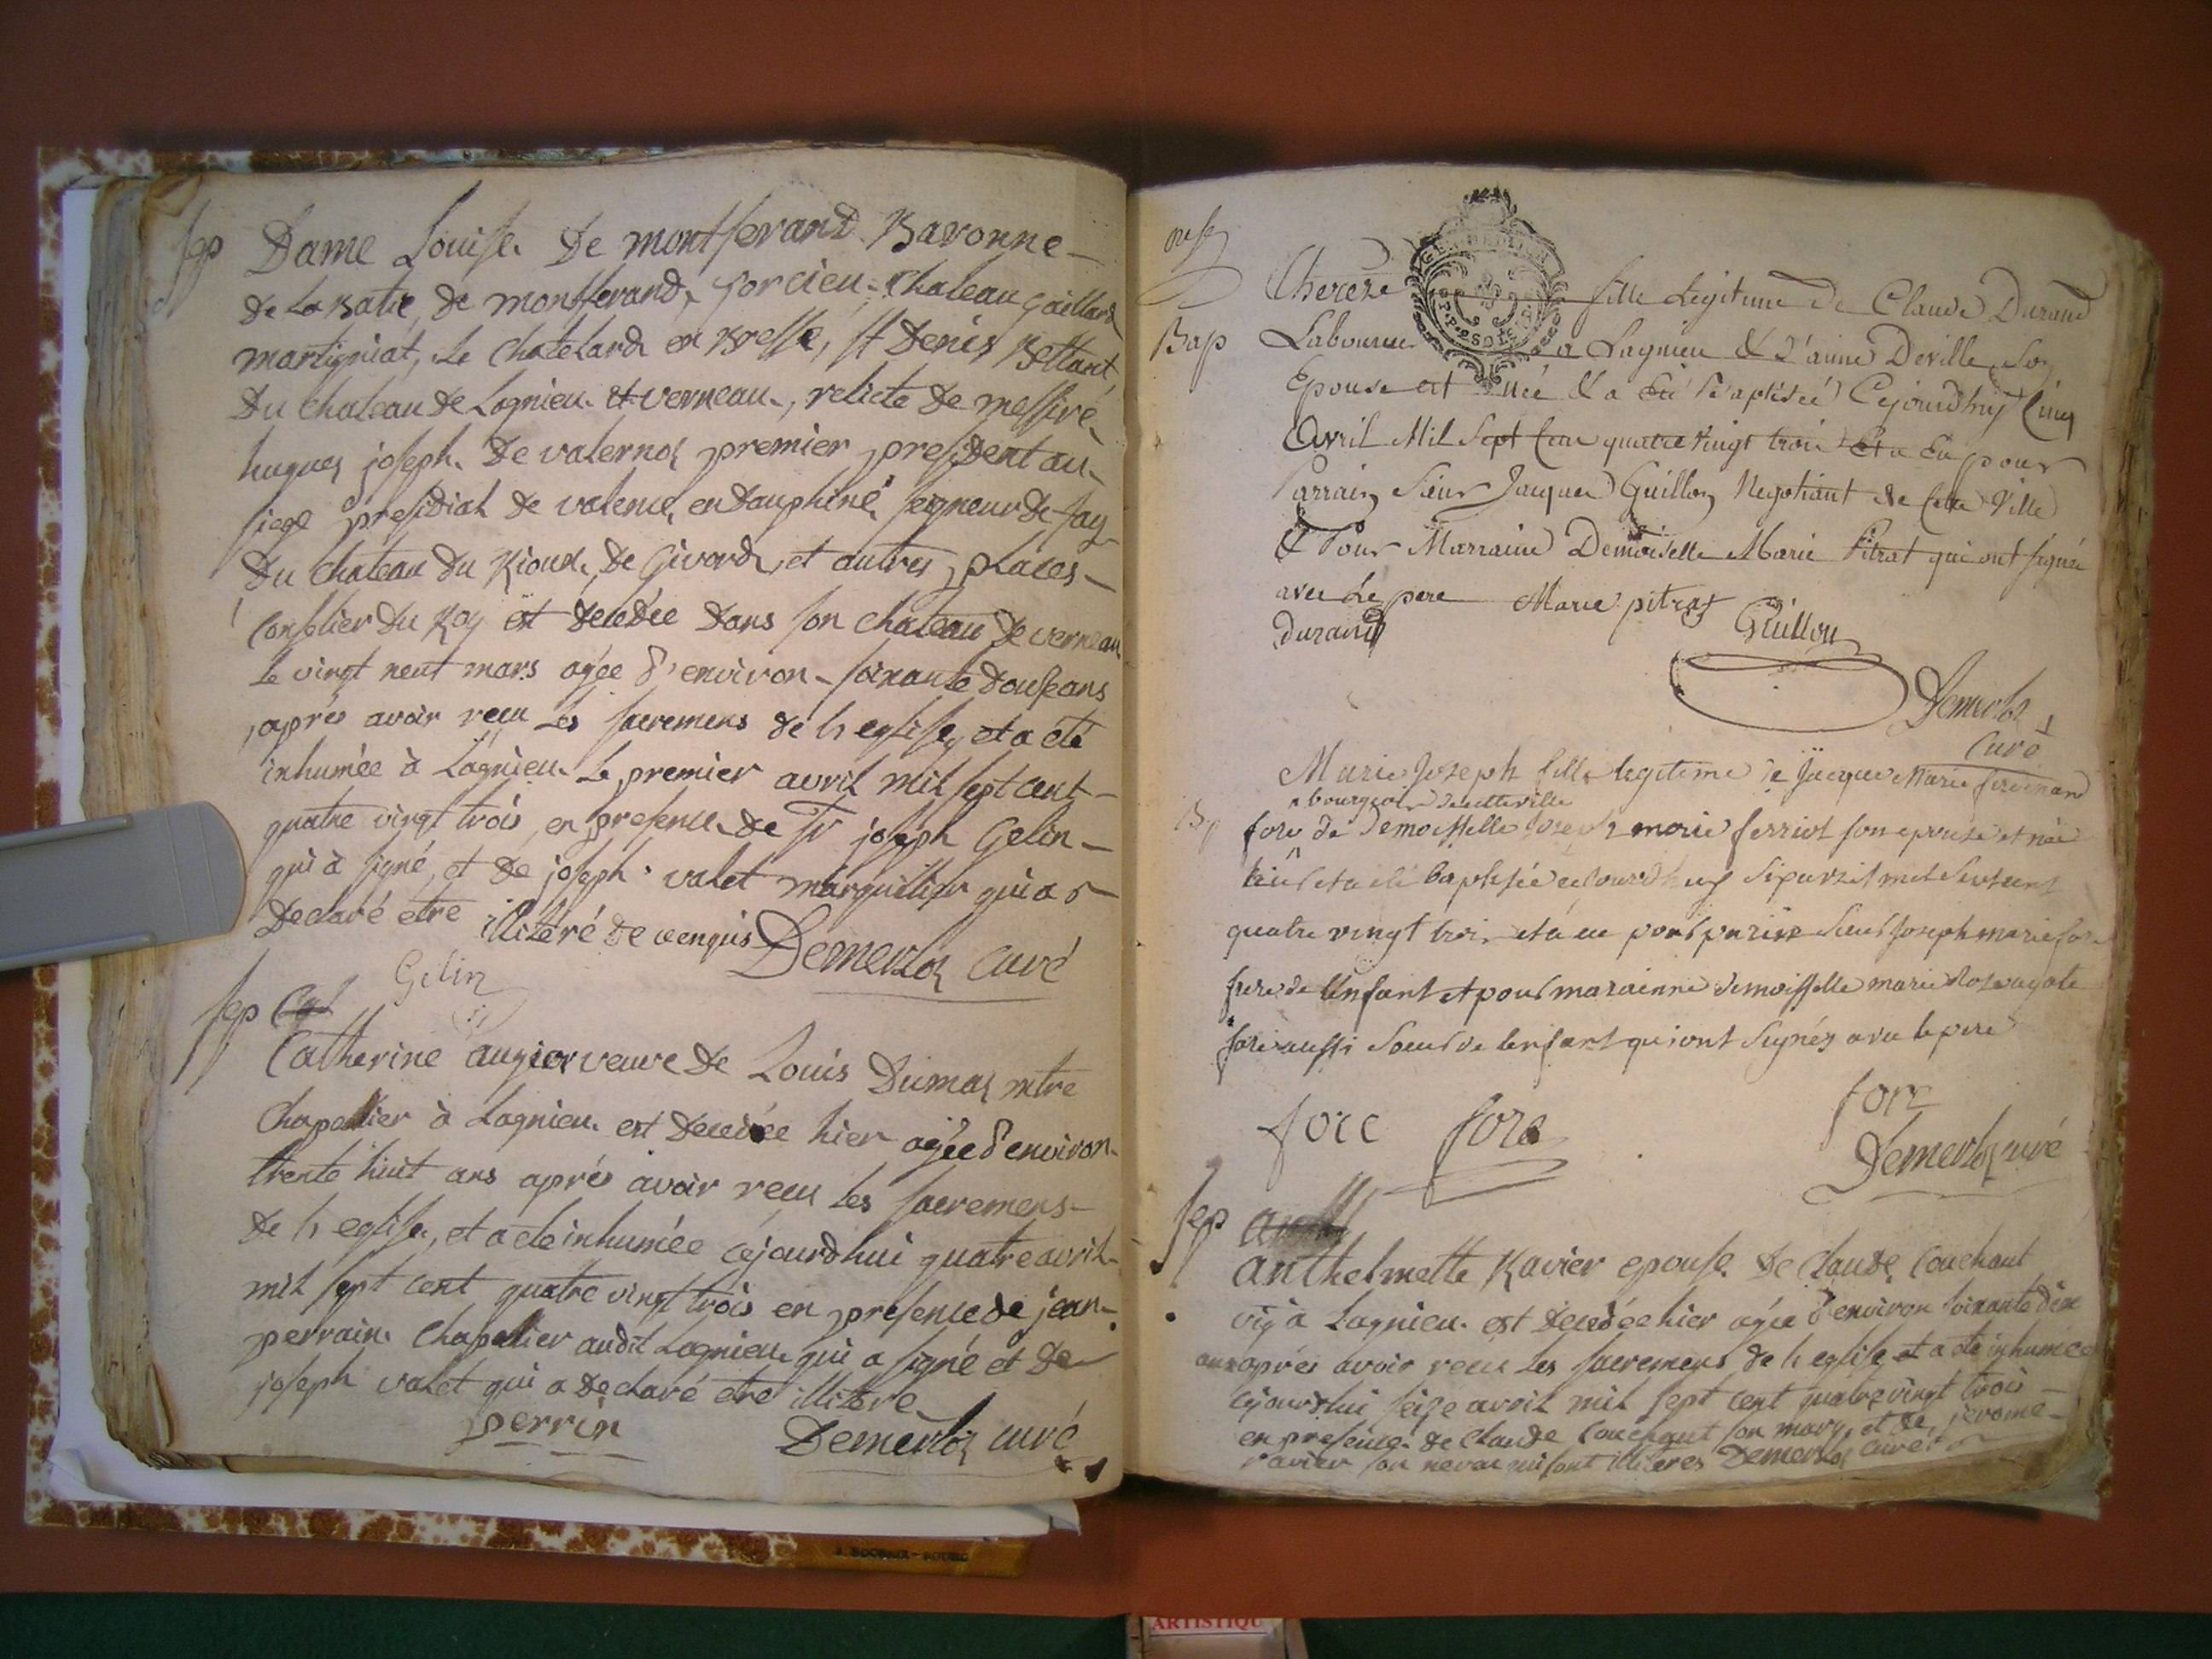 sep Dame Louise De montferand Baronne
de La Batie, de montferand, Torcieu, Chateau gaillard
martigniat, le Chatelard en Bresse, st Denis Bettant
Du chateau de Lagnieu et verneau, relicte de messire
hugues joseph De valernod premier president au
siege presidial de valence, en dauphiné, seigneur de fay
Du Chateau du Rioux, De Givord, et autres places
Conselier du Roy est decedée dans son chateau de verneau
le vingt neuf mars agée d'environ soixante douse ans
après avoir reçu les sacremens de l'eglise, et a été
inhumée à Lagnieu le premier avril mil sept cent
quatre vingt trois en presence de Sr joseph Gelin
qui à signé, et de joseph valet marguillier qui a
declaré etre illiteré de ce enquis Demerloz curé
Gelin
sep
Catherine augier veuve de Louis Dumas mtre
Chapellier à Lagnieu est decedée hier agée d'environ
trente huit ans après avoir reçu les sacremens
de l'eglise, et a ete inhumée cejourdhui quatre avril
mil sept cent quatre vingt trois en presence de jean
perrain Chapellier audit Lagnieu qui a signé et de
joseph valet qui a declaré etre illitere
perrin Demerloz curé
onse
Thereze fille Legitime de Claude Durand
Bap Laboureur a Lagnieu & d'anne Deville Son
Epouse est née & a été Baptisée Cejourdhuy Cinq
Avril Mil Sept Cent quatre Vingt trois Et a Eu pour
Parrain Sieur Jacques Guillon Negotiant de Cette Ville
& Pour Marraine Demoiselle Marie Pitrat qui ont signé
avec Le pere Marie pitrat Guillon
durand
Demerloz
Curé
Marie Joseph fille legitime de Jacque Marie ferdinand
bourgeois de cette ville
fore de Demoisselle Joseph marie ferriot son epouse et née
hier et a été baptisée cejourdhuy mil sept cent
quatre vingt trois et a eu pour parain Sieur Joseph marie fore
frere de lenfant et pour marainne demoisselle marie Rose agate
fore aussi Soeur de lenfant qui ont Signés avec le pere
fore fore fore
Demerloz curé
sep
anthelmette Ravier epouse de Claude Couchant
vig à Lagnieu est decedée hier agée d'environ soixante dix
ans après avoir reçu les sacremens de l'eglise et a été inhumée
cejourdhui seize avril mil sept cent quatre vingt trois
en presence de Claude Couchant son mary, et de jerome
ravier son neveu qui sont illiteres Demerloz curé
ARTISTIQU